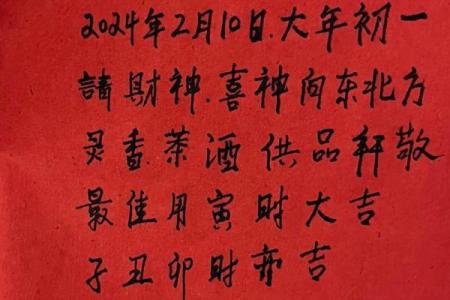 2024年2月10日.大年初一
請財神.喜神向东北方
炅香.茶酒供品拜敬
最佳用寅时大吉
子丑卯时亦吉